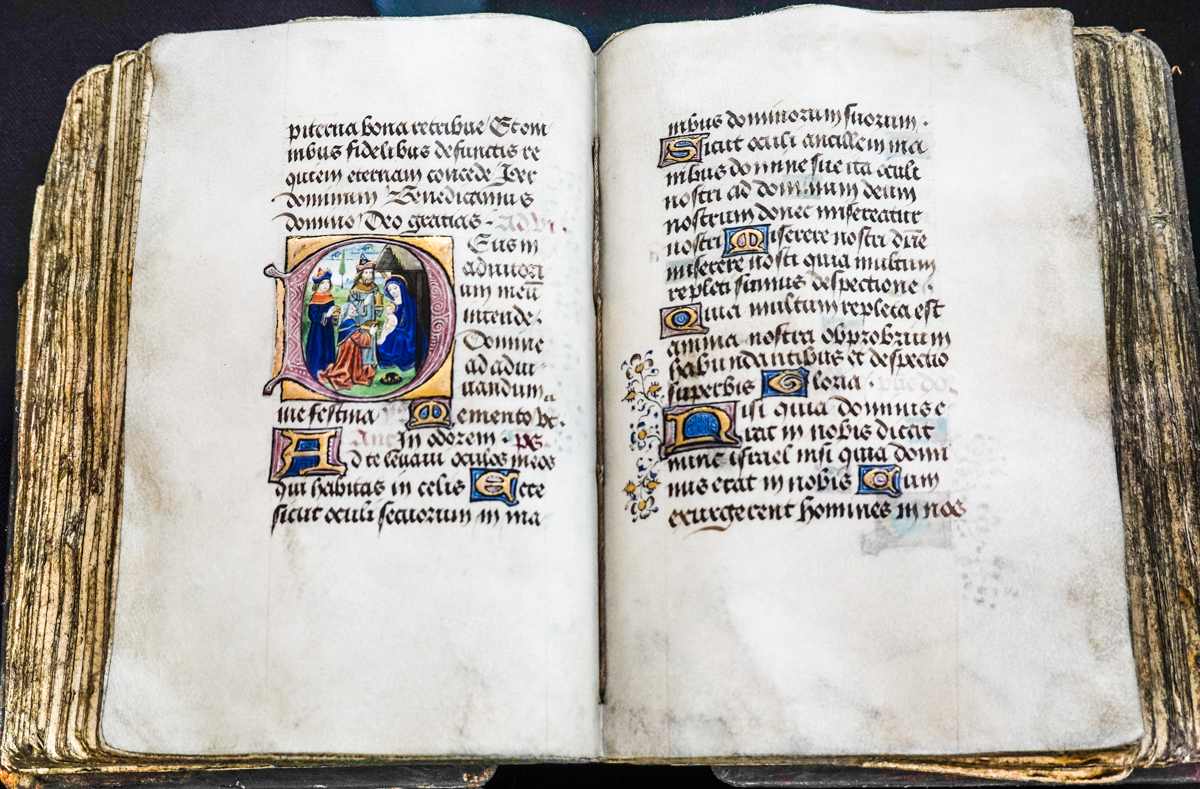 piterna bona retribue Et om
nibus fidelibus defunctis re
quiem eternam concede Per
dominum Benedicamus
domino Deo gracias
Deus in
adiutori
um meū
intende
Domine
ad adiu
uandum
me festina Memento
Ant In odorem ps
Ad te leuaui oculos meos
qui habitas in celis Ecce
sicut oculi seruorum in ma
nibus dominorum suorum
Sicut oculi ancille in ma
nibus domine sue ita oculi
nostri ad dominum deum
nostrum donec misereatur
nostri Miserere nostri dñe
miserere nostri quia multum
repleti sumus despectione
Quia multum repleta est
anima nostra obprobrium
habundantibus et despectio
superbis Gloria
Nisi quia dominus e
rat in nobis dicat
nunc israel nisi quia domi
nus erat in nobis Cum
exurgerent homines in nos